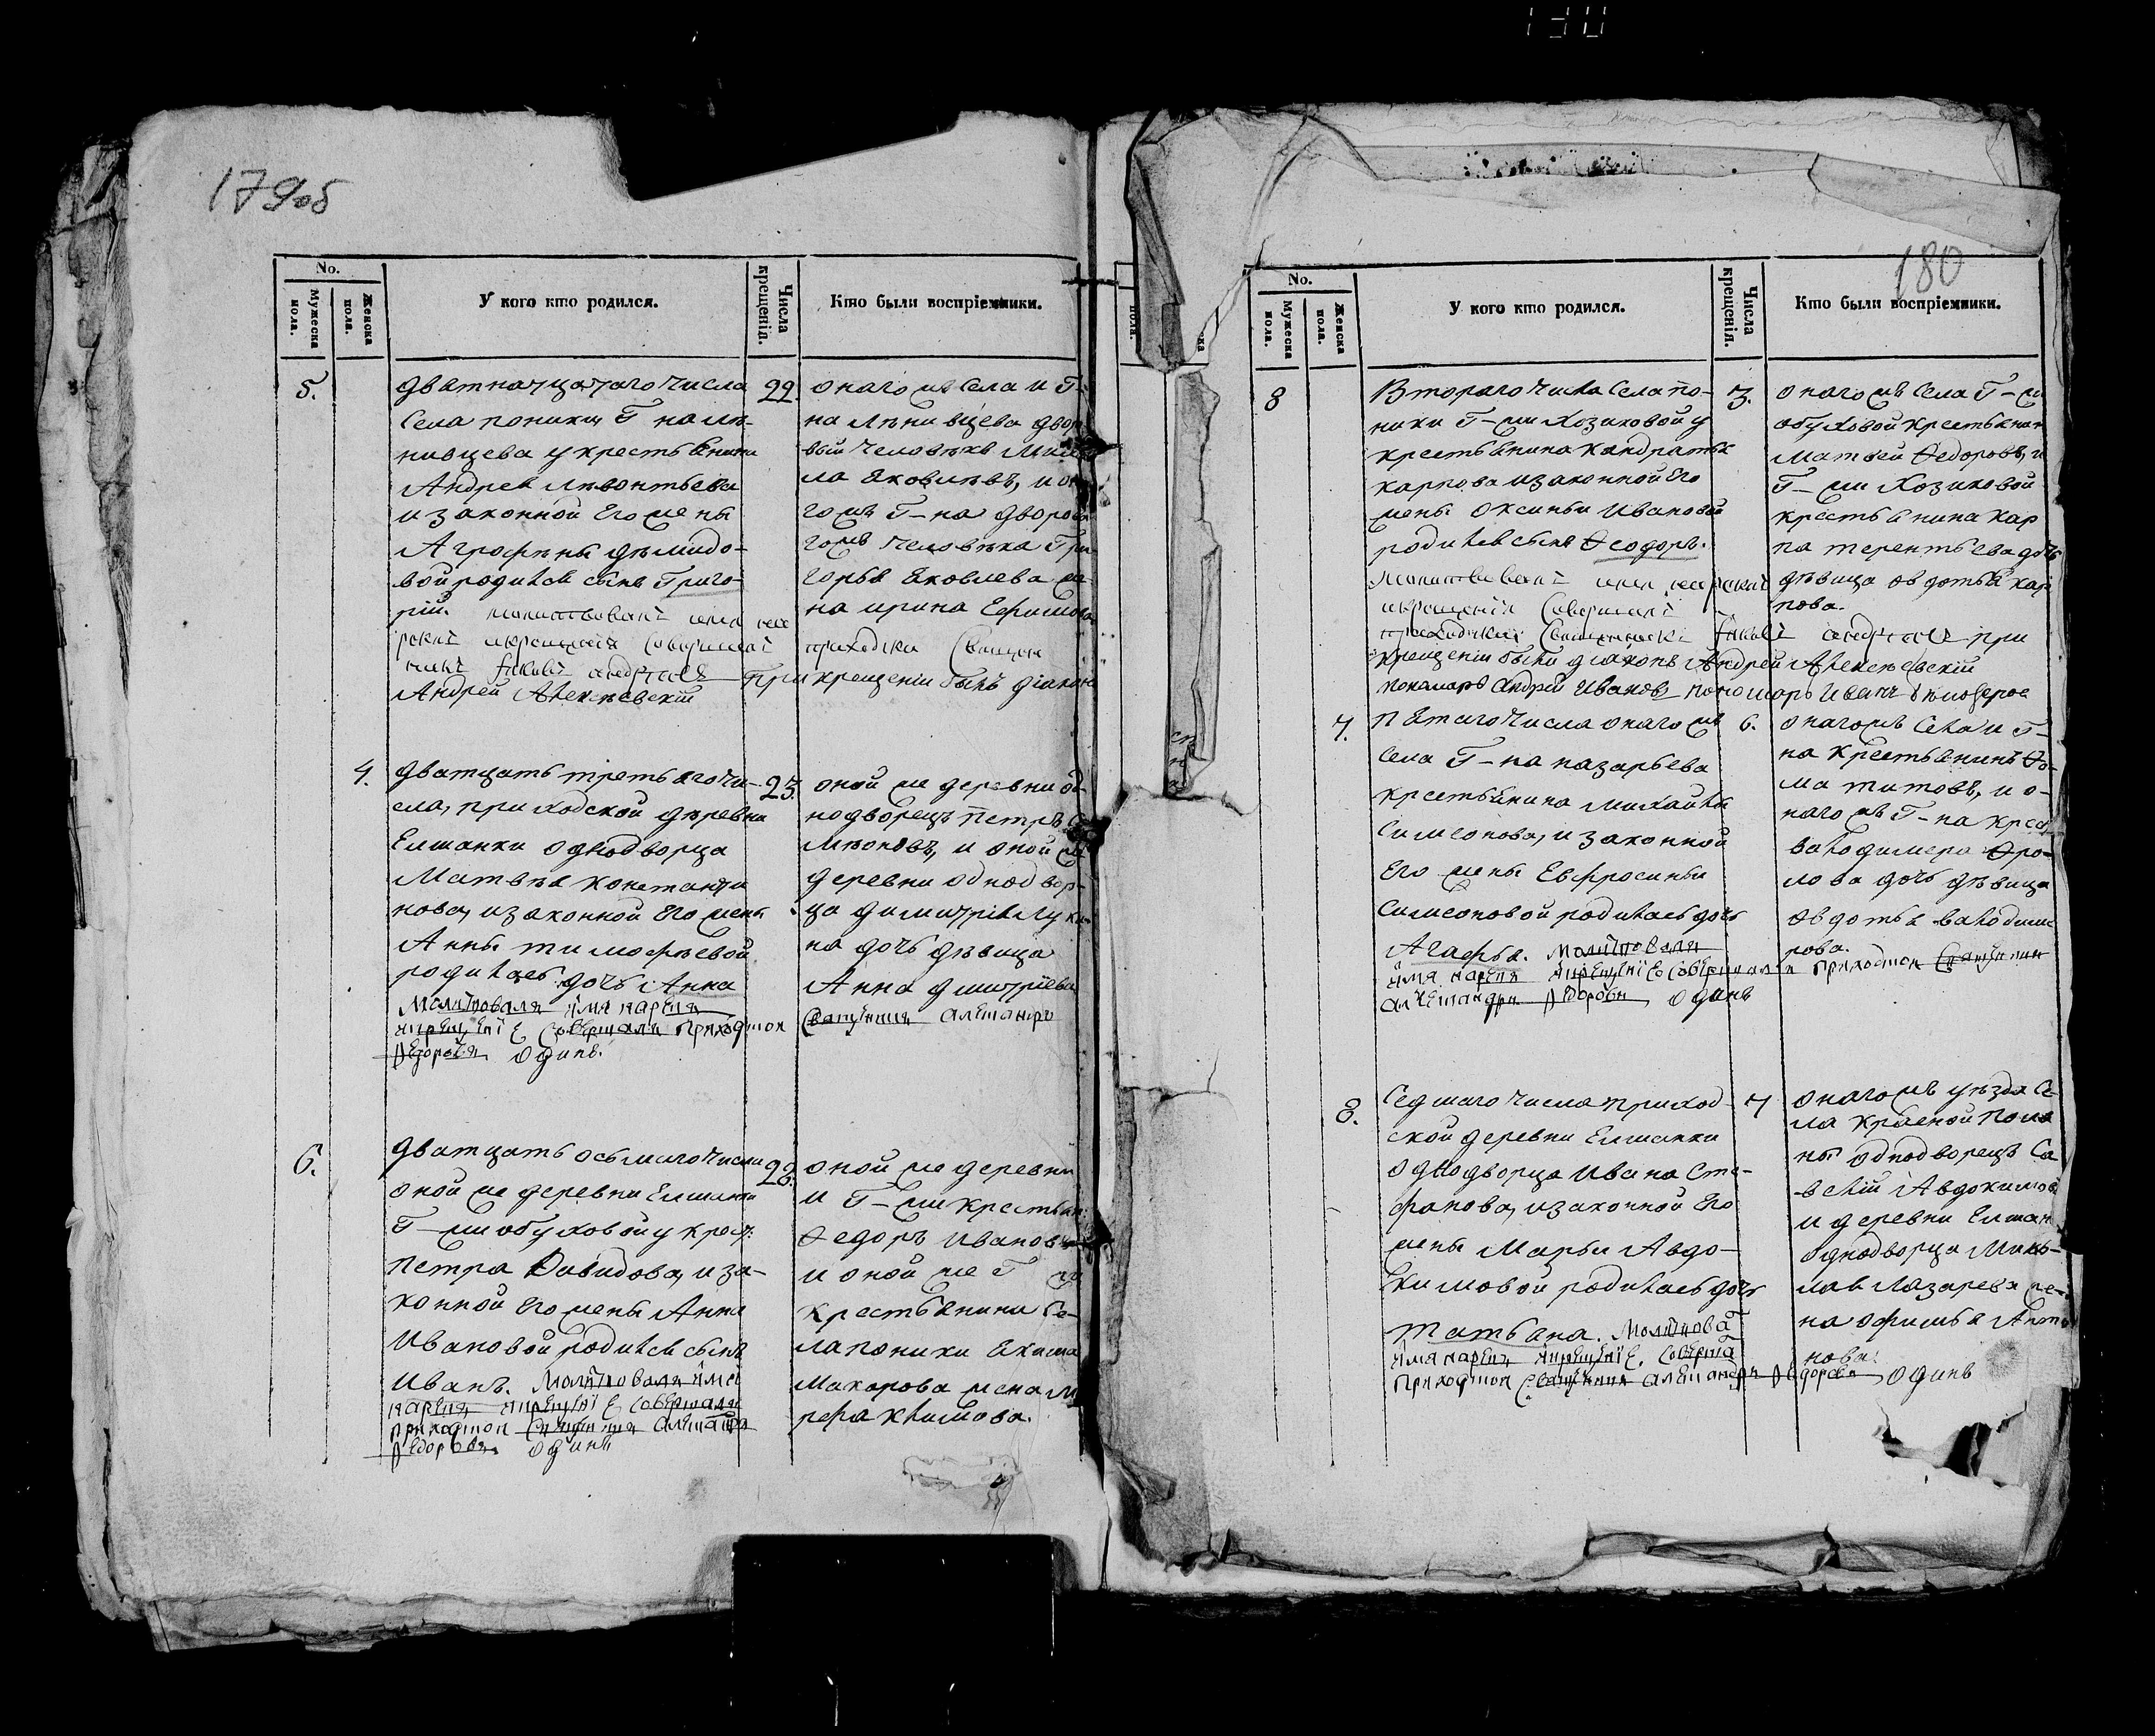 179об
No.
Мужеска пола.
Женска пола.
У кого кто родился.
Числа крещенія.
Кто были воспріемники.
5.
дватнатцатаго числа
села поники Г на лѣ-
нивцева у крестьянина
Андрея лѣвонтьева
и законной Его жены
Агрофѣны дѣмидо-
вой родился сынъ Григо-
рій. молитвовалъ имя наре
рекъ и крещенія совершалъ приходски Священ
никъ при крещеніи былъ діаконъ
Андрей Алексѣевскій
22.
онаго жъ села и Г-
на лѣнивцева
вый человѣкъ
ла яковлевъ, и
го жъ Г-на
го жъ человѣка Гри-
горья яковлева же-
на ирина Ефимова
4.
дватцать третьяго чи-
сла, приходской деревни
Елшанки однодворца
Матвѣя константи
нова, и законной Его жены
Анны тимофѣевой
родилась дочь Анна
Молитвовалъ имя нарекъ
и крещенїе совершалъ приходской Священникъ Алеѯандръ
Ѳедоровъ одинъ.
23.
оной же деревни од-
нодворецъ петръ
и оной же
деревни однодвор-
ца димитрія
на дочь дѣвица
Анна дмитріева
6.
дватцать осьмаго числа
оной же деревни Елшанки
Г-жи обуховой у крест:
петра Давидова, и за-
конной Его жены Анны
Ивановой родился сынъ
Иванъ. Молитвовалъ имя
нарекъ и крещенїе совершалъ
приходской Священникъ
Ѳедоровъ одинъ
28.
оной же деревни
и Г-жи крестьян
Ѳедоръ Ивановъ
и оной же Г жи
крестьянина се-
ла поники Екима
Макарова жена
Климова.
180
No.
Мужеска пола.
Женска пола.
У кого кто родился.
Числа крещенія.
Кто были воспріемники.
8
Втораго числа села по-
ники Г-жи Хозиковой у
крестьянина кандратья
карпова и законной Его
жены Оксиньи Ивановой
родился сынъ Ѳеодоръ.
Молитвовалъ имя нарекъ
и крещенія совершалъ
приходски Священникъ при
крещеніи были діаконъ Андрей Алексѣевскій
пономарь Андрей Ивановъ пономарь Иванъ
3.
онаго жъ села Г-жи
обуховой крестьянин
Матвей Ѳедоровъ, и
Г-жи Хозиковой
крестьянина кар
па терентьева дочь
дѣвица овдотья кар
пова.
7.
пятаго числа онаго жъ
села Г-на назарьева
крестьянина михайлы
Симеонова, и законной
Его жены Евфросиньи
Симеоновой родилась дочь
Агафья. молитвовалъ
имя нарекъ и крещенїе совершалъ приходской Священникъ
Ѳедоровъ одинъ
6.
онаго жъ села и Г-
на крестьянинъ Ѳо-
ма титовъ, и о-
наго жъ Г-на крес
валодимера Ѳро-
лова дочь дѣвица
овдотья валодиме
рова.
8.
Седмаго числа приход-
ской деревни Елшанки
однодворца Ивана Сте-
фанова, и законной Его
жены Марьи Авдо-
кимовой родилась дочь
татьяна. Молитвова
имя нарекъ и крещенїе. соверша
приходской Священникъ Ѳедоровъ одинъ
7
онаго жъ уѣзда се-
ла красной поля
ны однодворецъ Са
велій Авдокимов
и деревни Елшан
однодворца
лазарева же-
на офимья
нова.